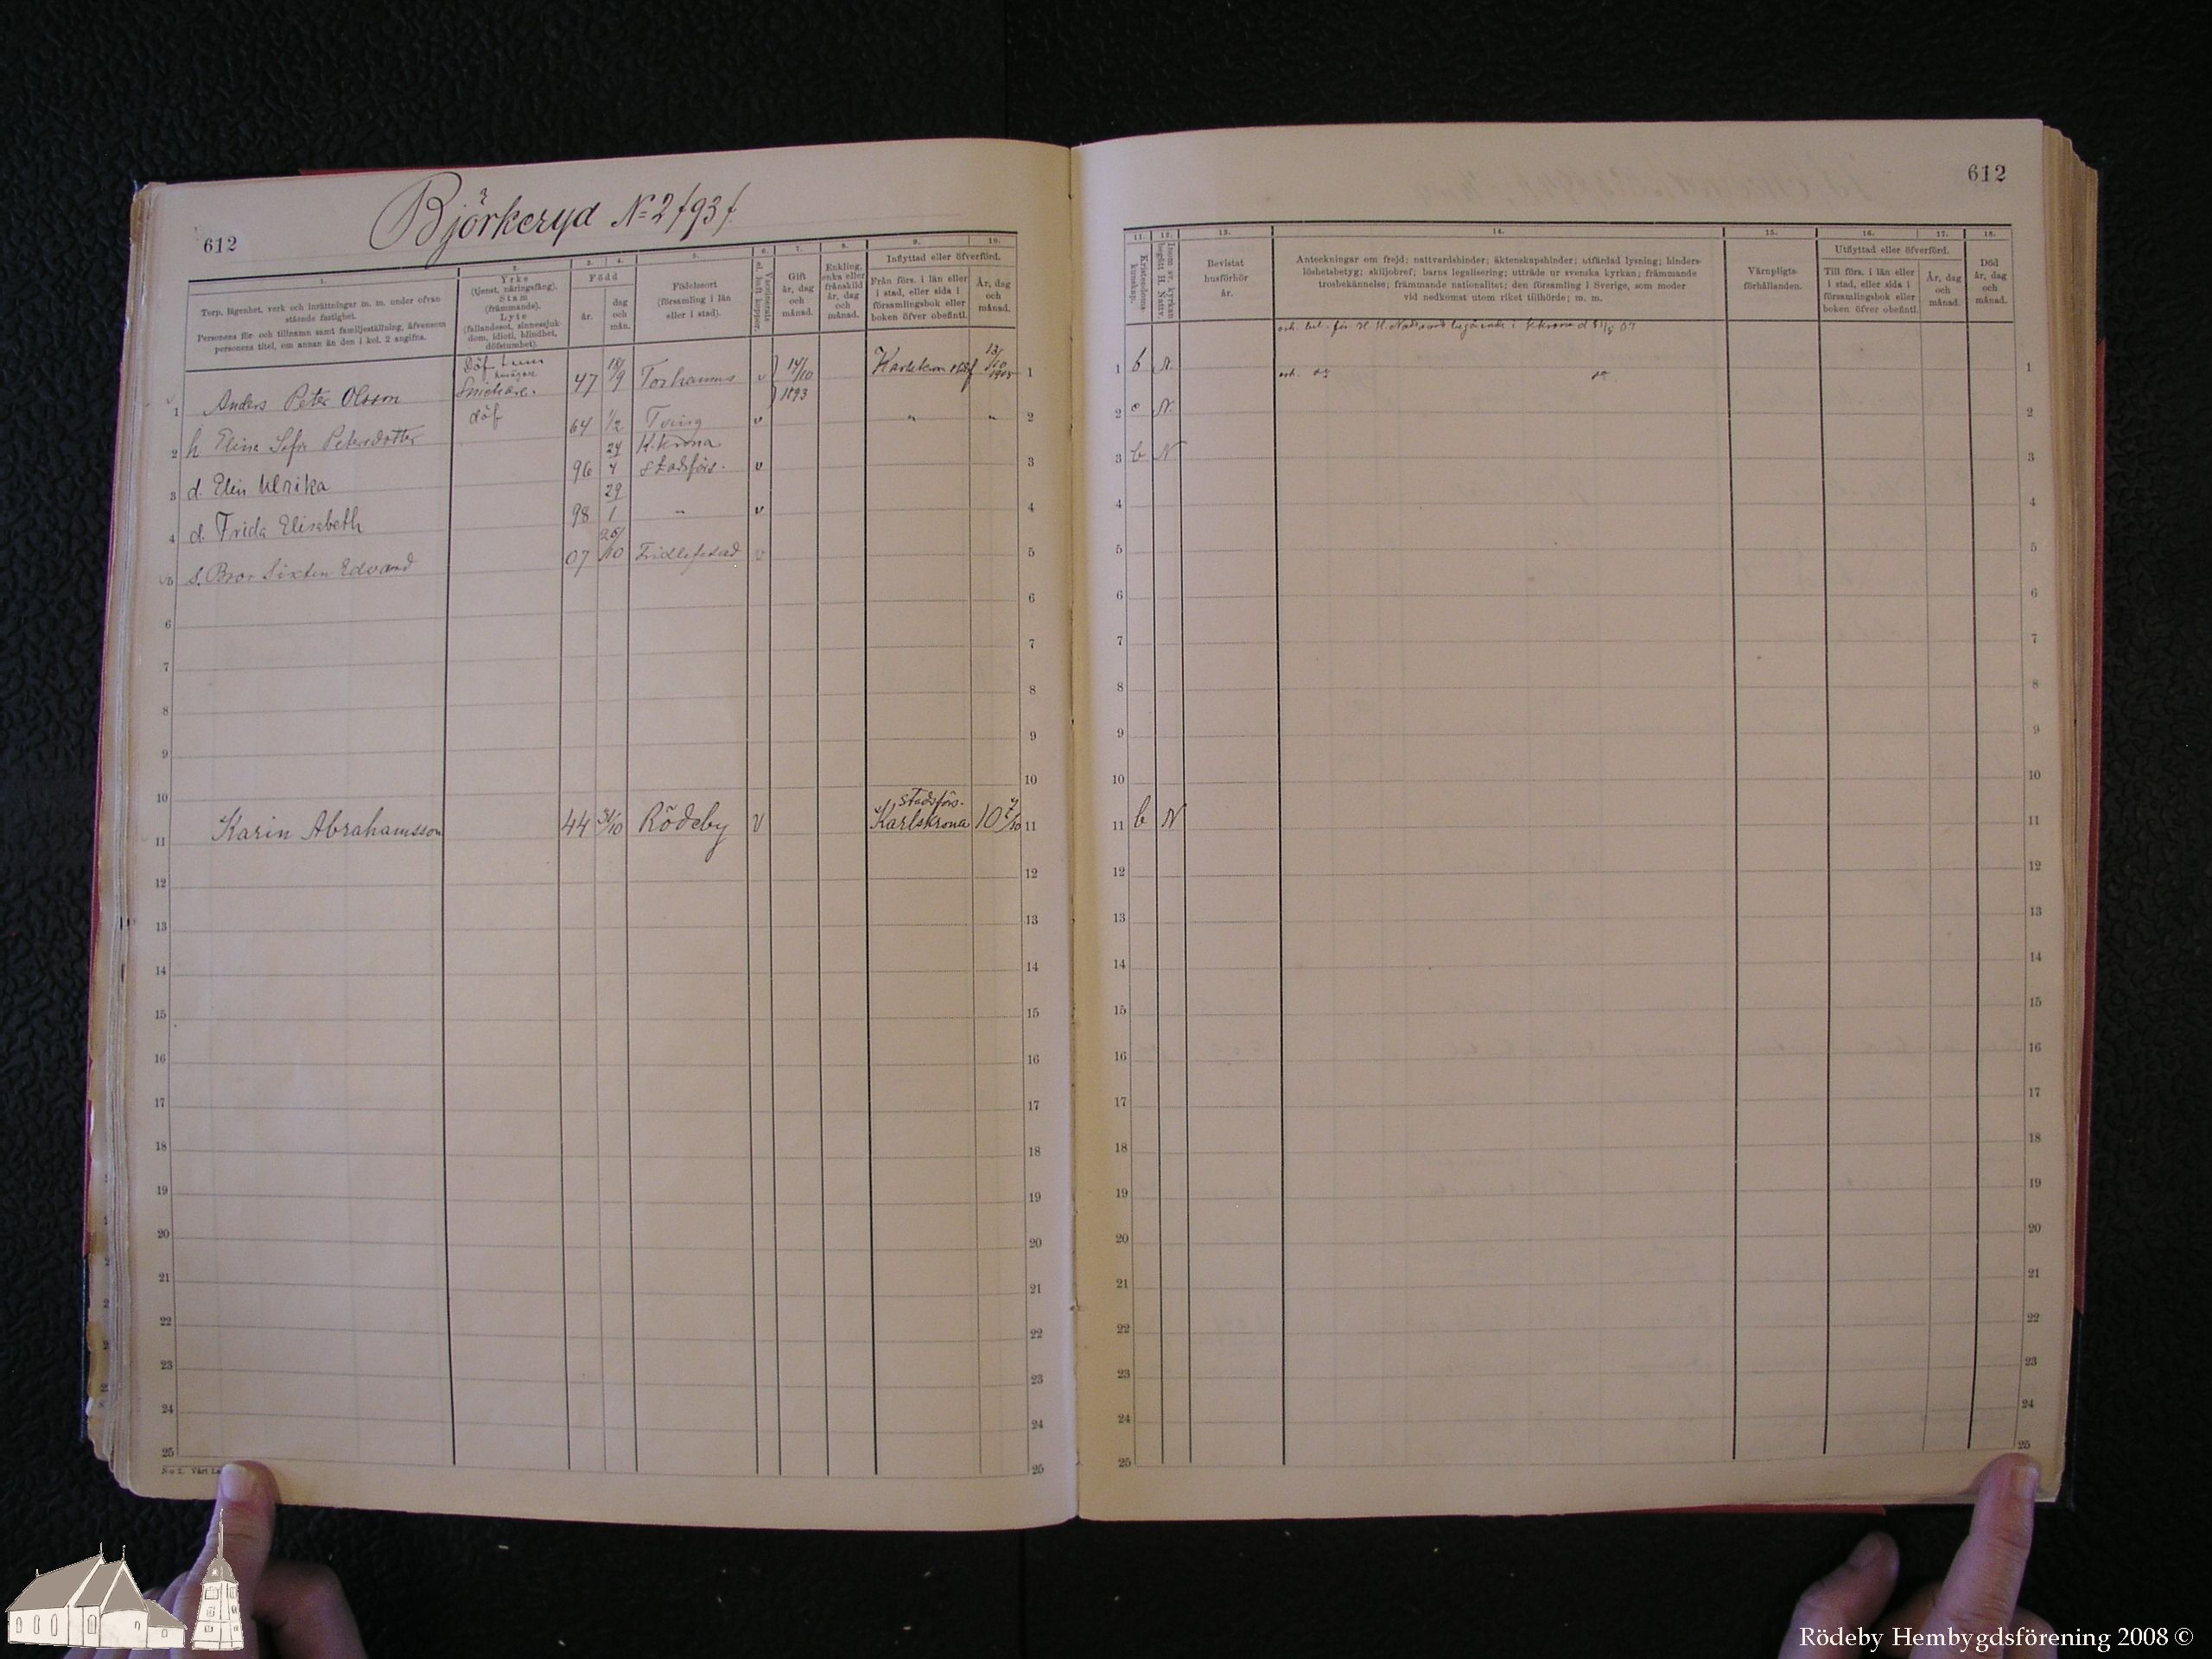 612
Björkeryd No 2 /93 f.
612
1.
2.
3.
4.
5.
6.
7.
8.
9.
10.
Torp, lägenhet, verk och inrättningar m. m. under ofvan
stående fastighet.
Personens för- och tillnamn samt familjeställning, äfvensom
personens titel, om annan än den i kol. 2 angifna.
Yrke
(tjenst, näringsfång).
Stam
(främmande).
Lyte
(fallandesot, sinnessjuk-
dom, idioti, blindhet,
döfstumhet).
Född
år.
dag
och
mån.
Födelseort
(församling i län
eller i stad).
Vaccinerats
el. haft koppor.
Gift
år, dag
och
månad.
Enkling,
enka eller
frånskild
år, dag
och
månad.
Inflyttad eller öfverförd.
Från förs. i län eller
i stad, eller sida i
församlingsbok eller
boken öfver obefintl.
År, dag
och
månad.
1 Anders Peter Olsson Döf Snickare. 47 18/9 Torhamn v 14/10 1893 13/10 1
2 h Elina Sofia Petersdotter döf 64 1/2 Tving v " " 2
3 d. Elin Ulrika 96 24/4 K.krona stadsförs. v 3
4 d. Frida Elisabeth 98 29/1 " v 4
5 s. Bror Sixten Edvard 07 26/10 Fridlefstad v 5
6 6
7 7
8 8
9 9
10 10
11 Karin Abrahamsson 44 31/10 Rödeby v stadsförs. Karlskrona 10 11
12 12
13 13
14 14
15 15
16 16
17 17
18 18
19 19
20 20
21 21
22 22
23 23
24 24
25 25
No 2.
11.
12.
13.
14.
15.
16.
17.
18.
Kristendoms-
kunskap.
Inom sv. kyrkan
begått H. Nattv.
Bevistat
husförhör
år.
Anteckningar om frejd; nattvardshinder; äktenskapshinder; utfärdad lysning; hinders-
löshetsbetyg; skiljobref; barns legalisering; utträde ur svenska kyrkan; främmande
trosbekännelse; främmande nationalitet; den församling i Sverige, som moder
vid nedkomst utom riket tillhörde; m. m.
Värnpligts-
förhållanden.
Utflyttad eller öfverförd.
Till förs. i län eller
i stad, eller sida i
församlingsbok eller
boken öfver obefintl.
År, dag
och
månad.
Död
år, dag
och
månad.
1 b N. 1
2 c N. 2
3 b N 3
4 4
5 5
6 6
7 7
8 8
9 9
10 10
11 b N 11
12 12
13 13
14 14
15 15
16 16
17 17
18 18
19 19
20 20
21 21
22 22
23 23
24 24
25 25
Rödeby Hembygdsförening 2008 ©